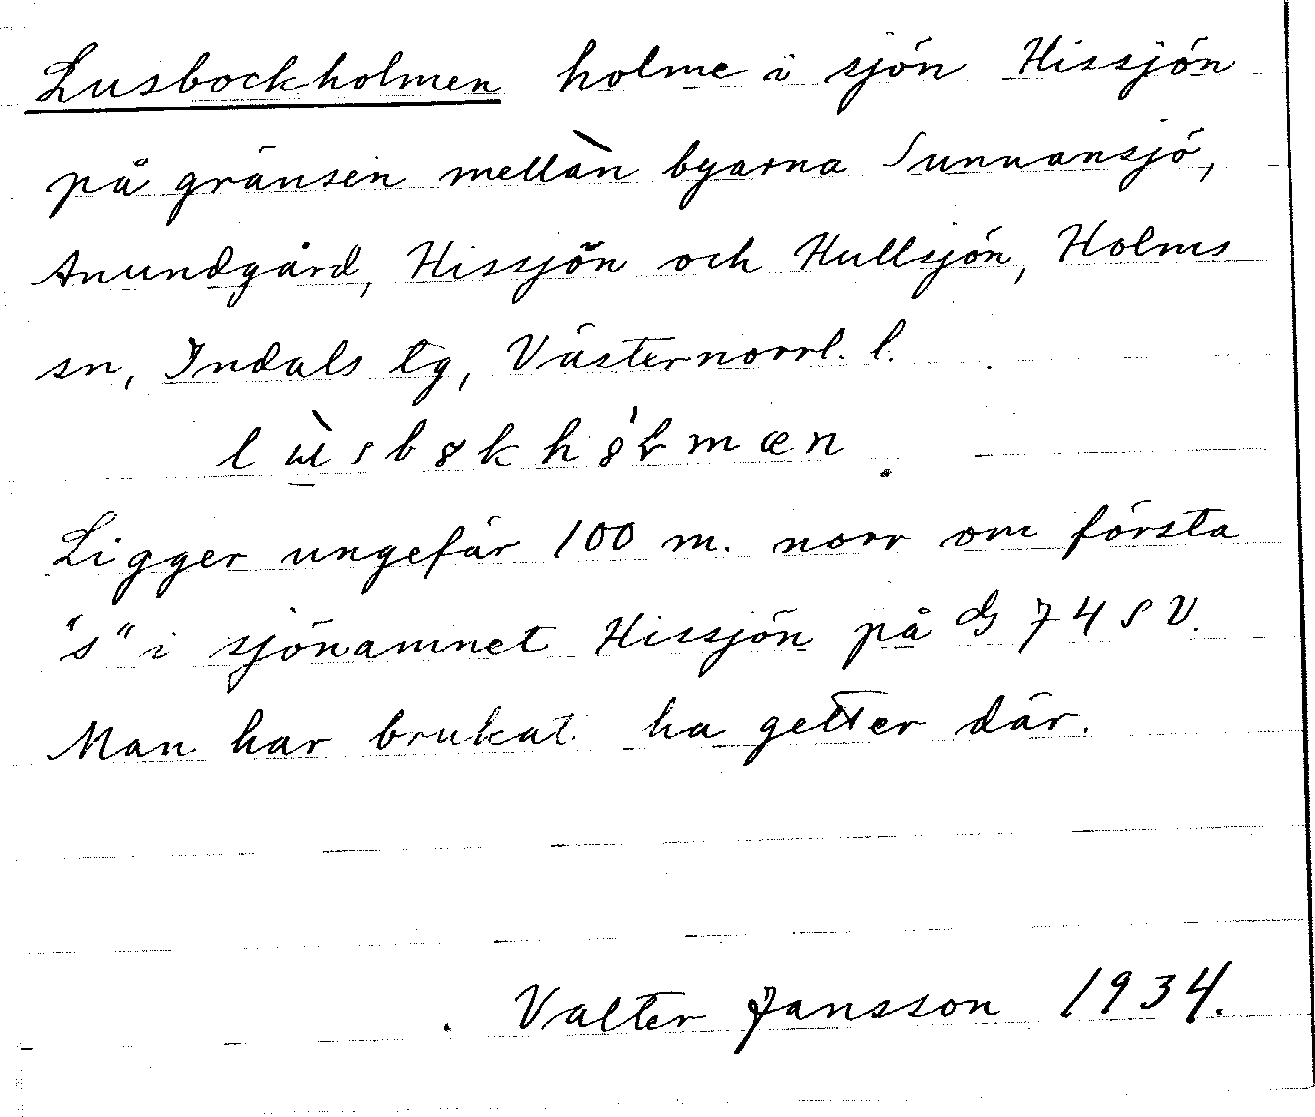 Lusbockholmen holme i sjön Hissjön
på gränsen mellan byarna Sunnansjö,
Anundgård, Hissjön och Hullsjön, Holms
sn, Indals tg, Västernorrl. l.
Ligger ungefär 100 m. norr om första
"s" i sjönamnet Hissjön på G 74 SV.
Man har brukat ha getter där.
Valter Jansson 1934.